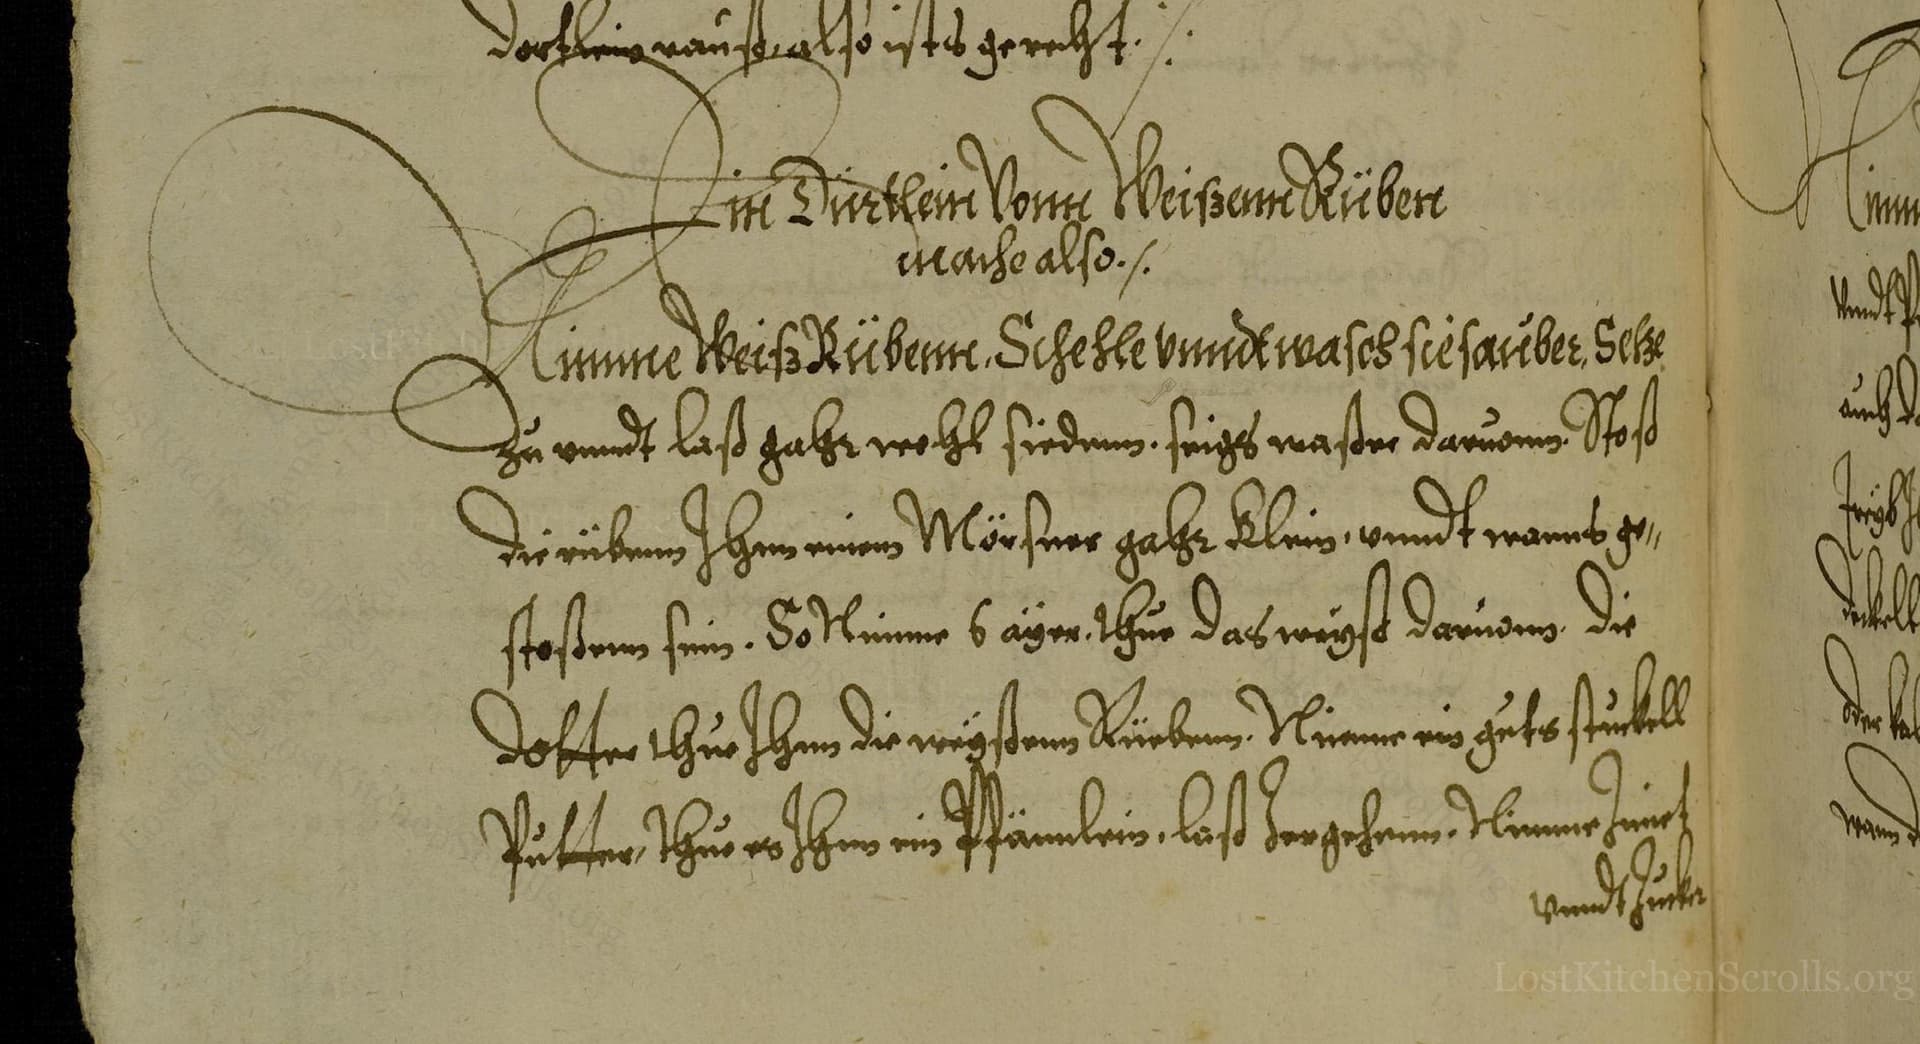 dortlein rauß, also ists gerecht ./.
Ein Dürtlein Vonn Weißenn Rüben
mache also ./.
Nimme Weiß Rübenn, Schehle vnndt wasch sie sauber, Setze
zu vnndt laß gahr wohl siedenn. seigs waßer daruonn. Stoß
die rübenn Ihnn einem Mörsner gahr klein, vnndt wanns ge„
stoßenn sein. So Nimme 6 äyer, thue das weyße daruonn. die
dotter thue Ihnn die weyßenn Rüebenn. Nimme ein guts stuckell
Putter, thue es Ihnn ein Pfännlein, laß Zergehenn. Nimme Zimet
vnndt Zucker
vnndt
auch
deckelt
oder
wann
LostKitchenScrolls.org